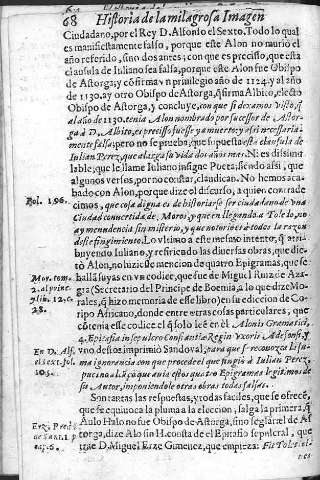 68 Historia de la milagrosa Imagen
Ciudadano, por el Rey D. Alonso el Sexto. Todo lo qual
es manifiestamente falso, porque este Alon no murió el
año referido, sino dos antes; con que es preciso, que esta
clausula de Iuliano sea falsa, porque este Alon fue Obispo
de Astorga, y cōfirma vn privilegio año de 1124. y al año
de 1130. ay otro Obispo de Astorga, q̃ firma Albito, electo
Obispo de Astorga, y concluye, con que si dexamos visto, q̃
al año de 1130. tenia Alon nombrado por successor de Astor-
ga à D. Albito, es preciso fuesse ya muerto, y assi necessaria-
mente falsa; pero no se prueba, que supuesta esta clausula de
Iulian Perez, que alarga su vida dos años mas. Ni es dissimu-
lable, que le llame Iuliano insigne Poeta; siendo assi, que
algunos versos, por no constar, claudican. No hemos aca-
bado con Alon, porque dize el discurso, a quien contrade
Fol. 196. cimos, que cosa digna es de historiarse ser ciudadano de vna
Ciudad concurrida de Moros, y que en llegando a Toledo, no
ay menudencia sin misterio, y que notorio es à todos la razon
deste fingimiento. Lo vltimo a este mesmo intento, q̃ atri-
buyendo Iuliano, y refiriendo las diversas obras, que dic-
tò Alon, no hiziesse mencion de quatro Epigramas, que se
Mor. tom. ballā suyas en vn codice, que fue de Miguel Ruiz de Aza-
2. al princ. gra (Secretario del Principe de Boemia, a lo que dize Mo-
y lib. 12. c. rales, q̃ hizo memoria de esse libro) en su ediccion de Co-
28. ripo Africano, donde entre otras cosas particulares, que
cōtenia esse codice el q̃ solo leè en èl. Alonis Gramatici,
4. Epitafia in sepulcro Constantiæ Regin. Vxoris Adefonsi, y
En D. Alf. vno dessos imprimiò Sandoval; para que se reconozca la su-
el Sext. fol. ma ignorancia con que procede el que fingiò à Iulian Perez,
105. pues no alcāçò que avia estos quatro Epigramas legitimos de
su Autor, imponiendole otras obras todas falsas.
Son tantas las respuestas, y todas faciles, que se ofrecē,
que se equivoca la pluma a la eleccion, salga la primera, q̃
Aulo Halo no fue Obispo de Astorga, sino seglar el de As-
torga, dize Alo sin H. consta de el Epitafio sepulcral, que
trae D. Miguel Erze Gimenez, que empieza: Fit Tolet.